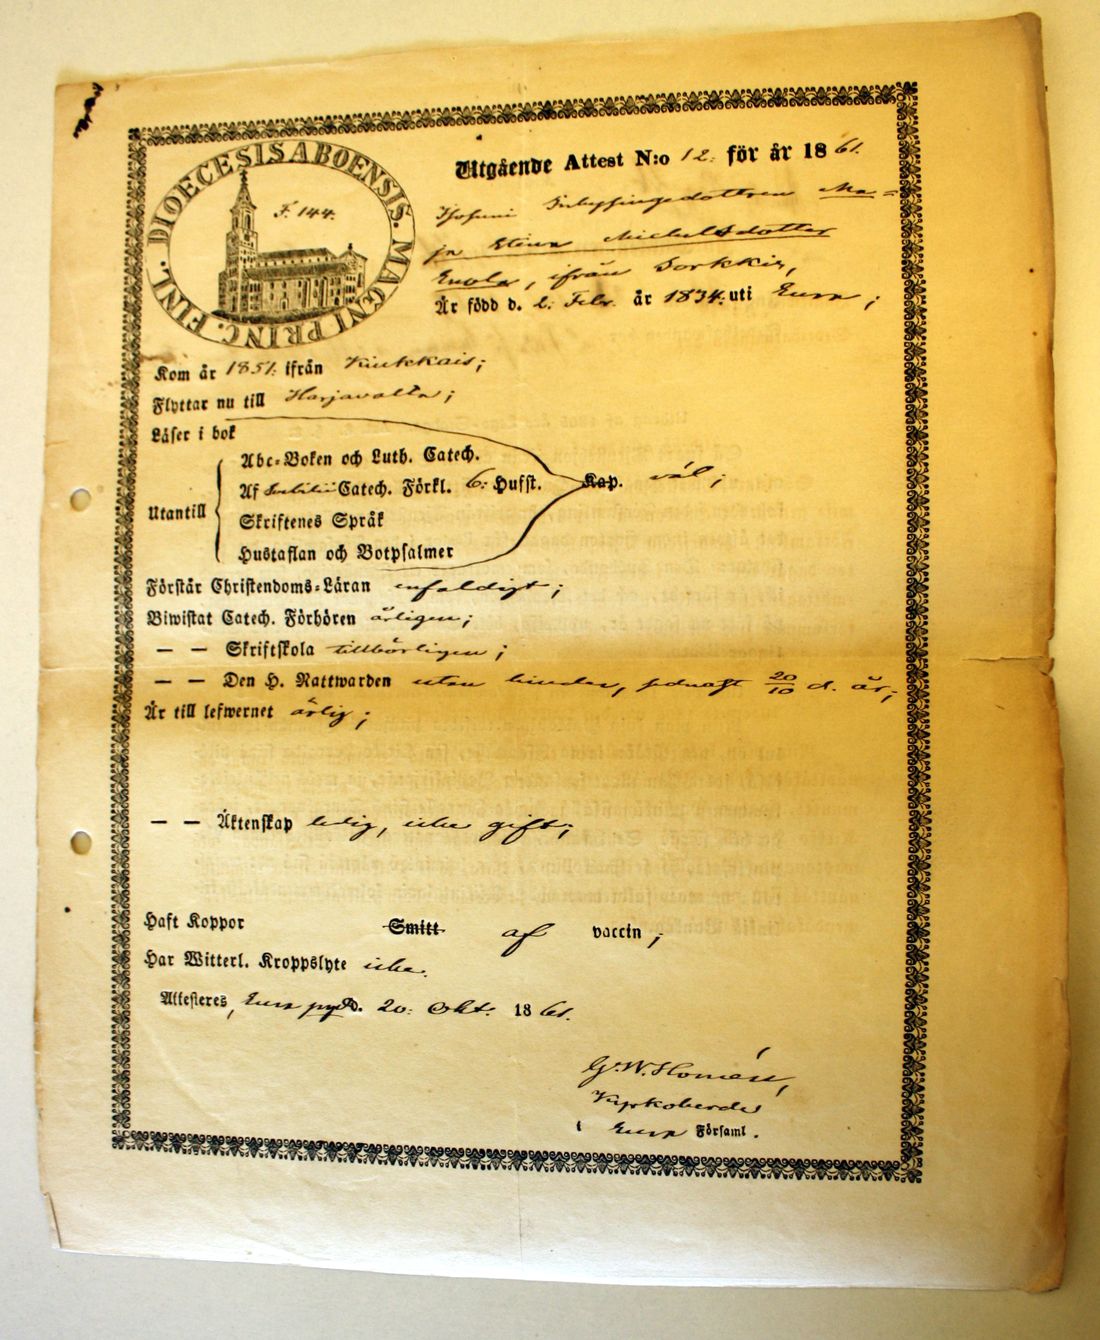 DIOECESIS ABOENSIS. MAGNI PRINC. FINL.
F. 144.
Utgående Attest N:o 12. för år 1861.
Inhyssingsdottren Ma=
ja Stina Michelsdotter
ifrån Sorkkis,
Är född d. 2. Febr. år 1834. uti Eura;
Kom år 1851. ifrån Kiukkais;
Flyttar nu till Harjavalta;
Läser i bok
Abc=Boken och Luth. Catech.
Utantill
Af Catech. Förkl. 6: Hufst. Kap. väl;
Skriftenes Språk
Hustaflan och Botpsalmer
Förstår Christendoms=Läran enfaldigt;
Biwistat Catech. Förhören årligen;
— — Skriftskola tillbörligen;
— — Den H. Nattwarden utan hinder, sednast 20/10 d. år;
Är till lefwernet ärlig;
— — Äktenskap ledig, icke gift;
Haft Koppor Smitt af vaccin;
Har Witterl. Kroppslyte icke.
Attesteres, Eura d. 20. Okt. 1861.
G. W. Homén,
Kyrkoherde
i Eura Församl.